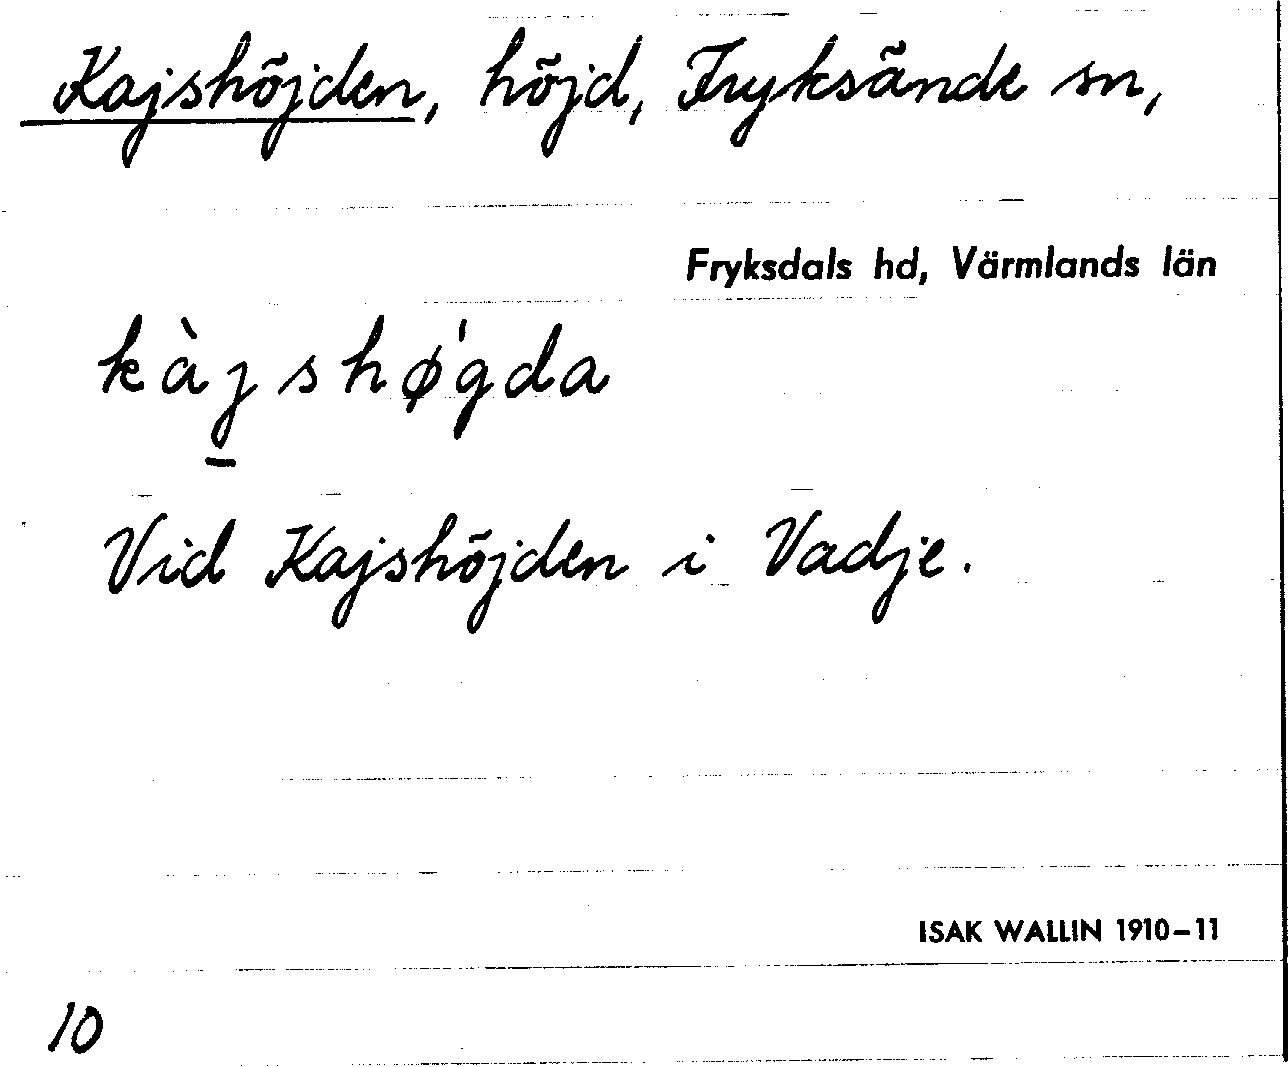 Kajshöjden, höjd, Fryksände sn,
Fryksdals hd, Värmlands län
kàj̱shǿgda
Vid Kajshöjden i Vadje.
ISAK WALLIN 1910–11
10